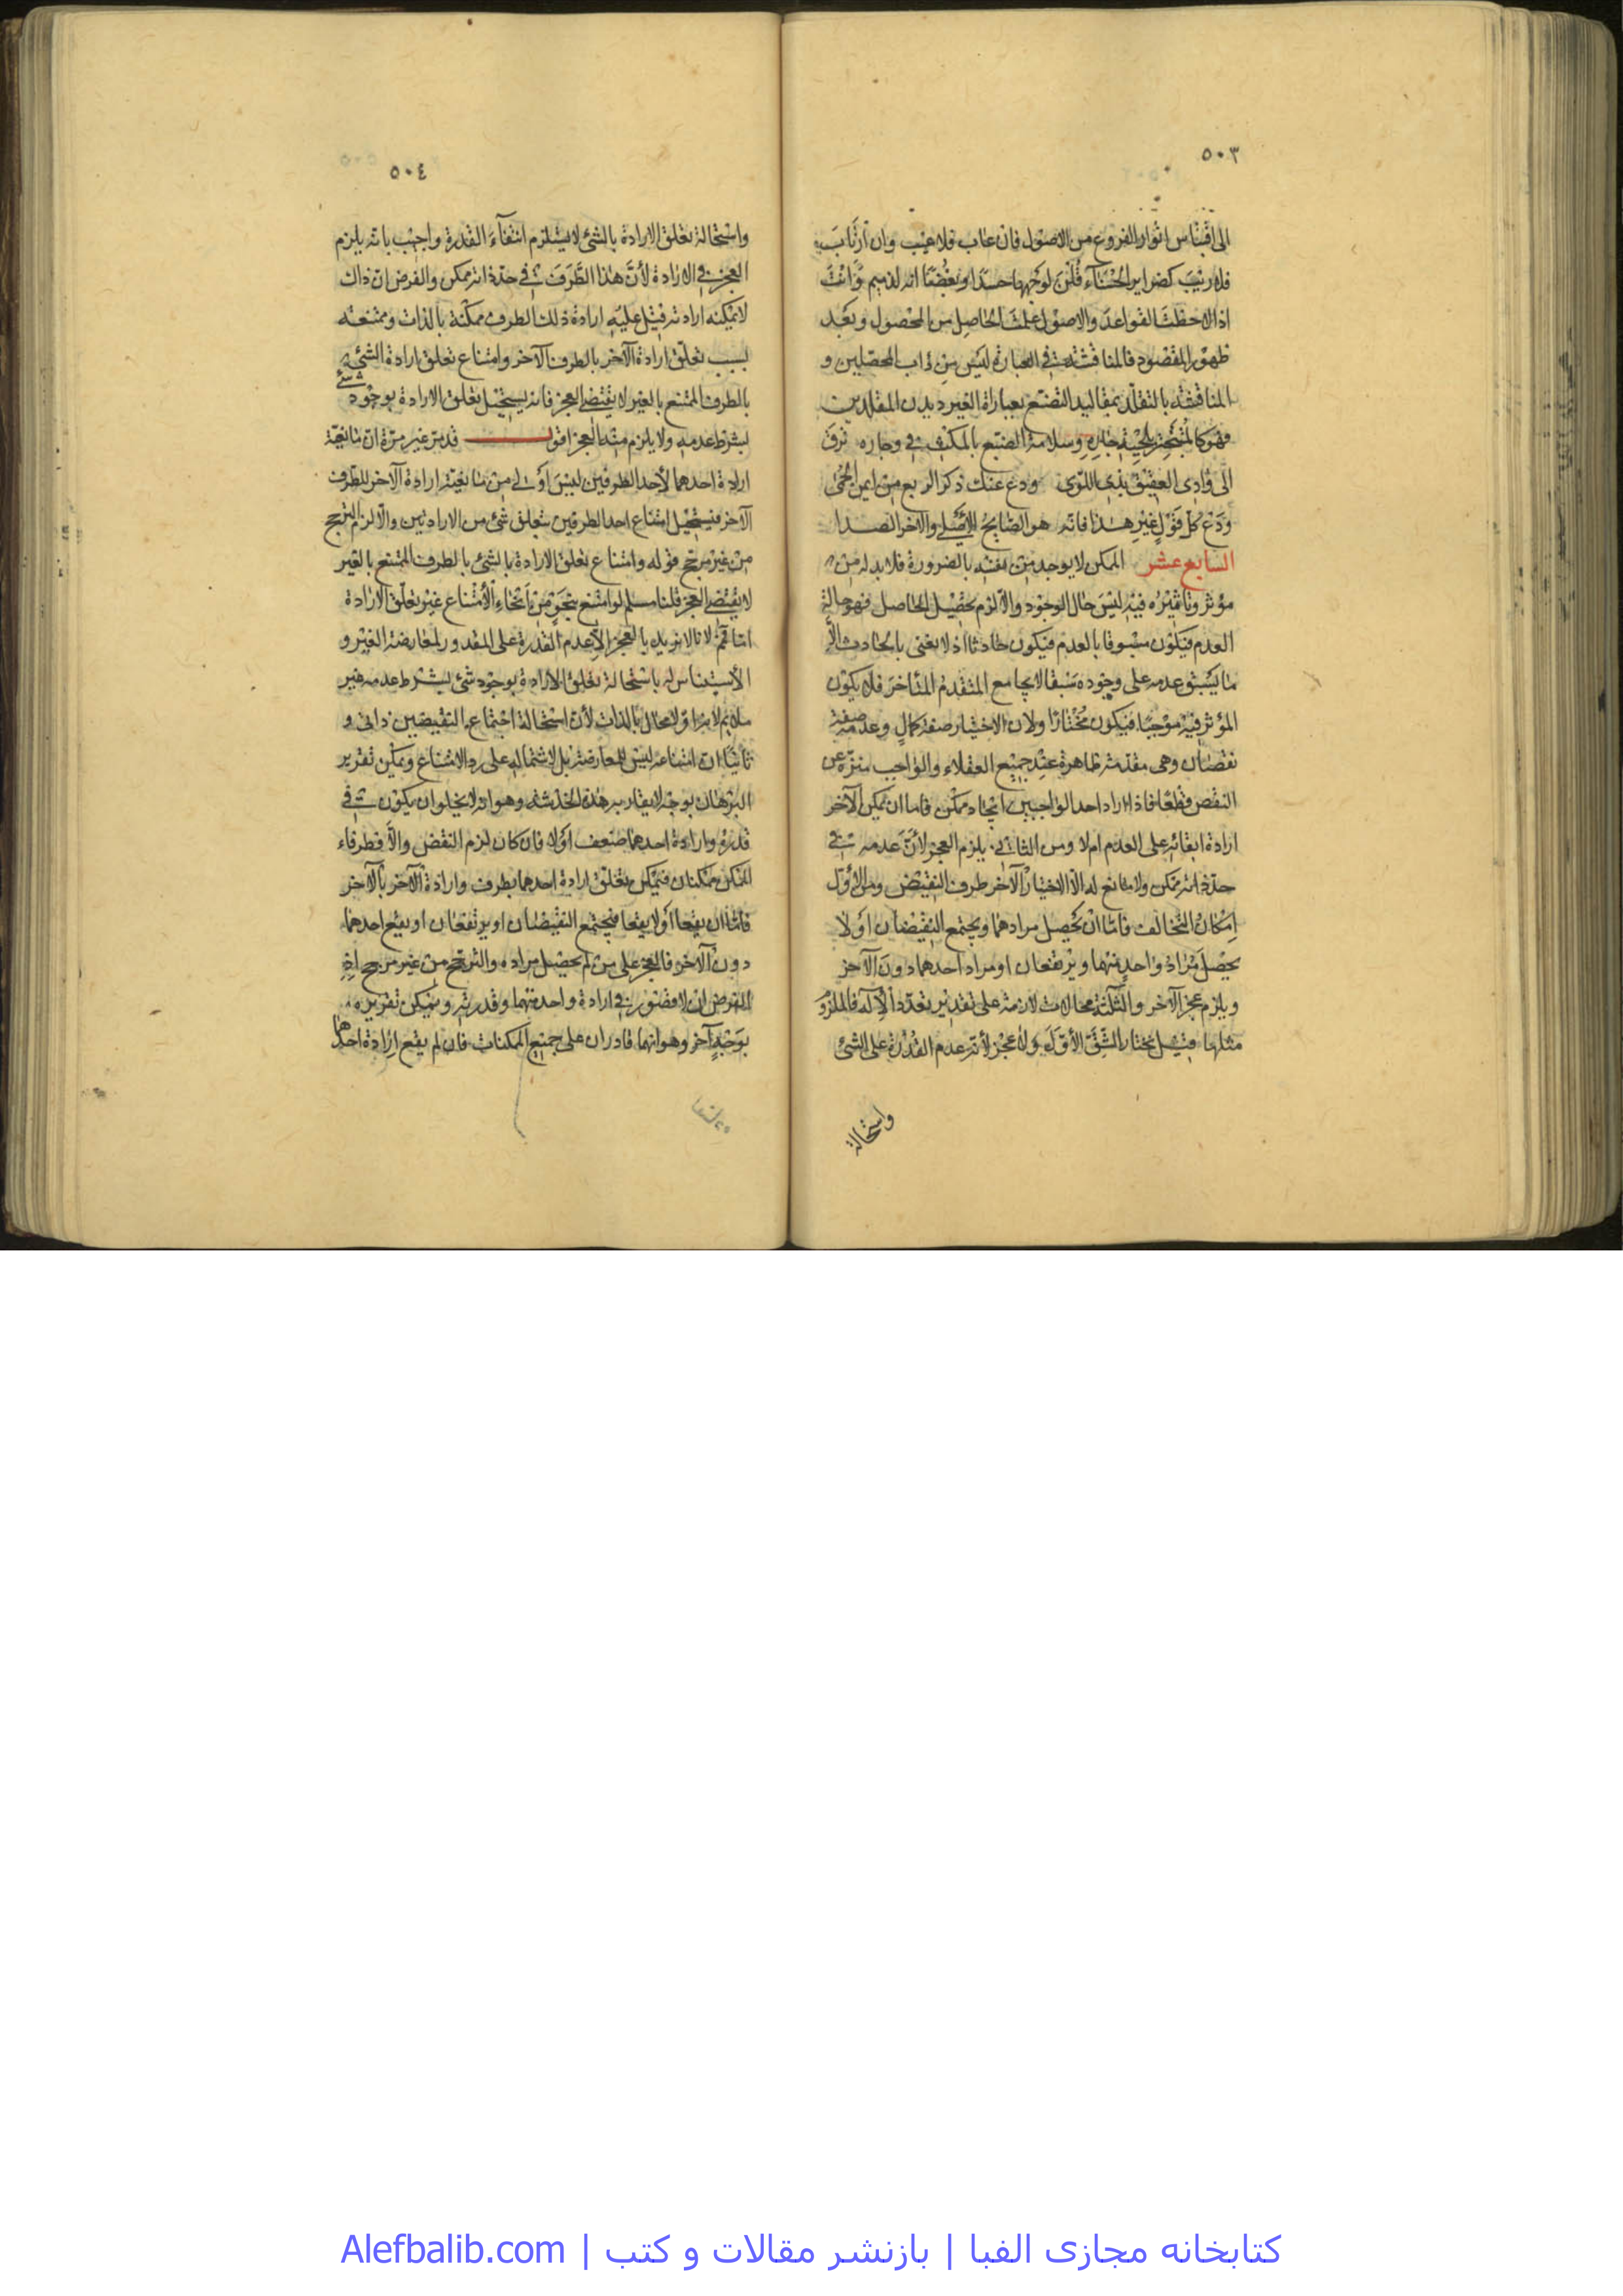 ٥٠٣
الى اقتباس انوار الفروع من الاصول فان عاب فلا عيب وان ارتاب
فلا ريب كضراير الحسناء قلن لوجهها حسدا وبغضا انه لذميم وانت
اذا لاحظت القواعد والاصول علمت الحاصل من المحصول وبعد
ظهور المقصود فالمناقشة في العبارة ليس من داب المحصلين و
المناقشة بالتقلد بمقاليد التصنع بعبارة الغير ديدن المقلدين
فهو كالمتبختر بلحية جاره وسلامة الضبع بالمكث في وجاره ترق
الى وادى العقيق بذى اللوى ودع عنك ذكر الربع من ايمن الحمى
ودع كل قول غير هذا فانه هو الصايح الاصلى والاخر الصدا
السابع عشر الممكن لا يوجد من نفسه بالضرورة فلا بد له من
مؤثر وتاثيره فيه ليس حال الوجود والا لزم تحصيل الحاصل فهو حالة
العدم فيكون مسبوقا بالعدم فيكون حادثا اذ لا نعنى بالحادث الا
ما يسبق عدمه على وجوده سبقا لا يجامع المتقدم المتاخر فلا يكون
المؤثر فيه موجبا فيكون مختارا ولان الاختيار صفة كمال وعدمه صفة
نقصان وهى مقدمة ظاهرة عند جميع العقلاء والواجب منزه عن
النقص قطعا فاذا اراد احد الواجبين ايجاد ممكن فاما ان يمكن الآخر
ارادة ابقائه على العدم ام لا ومن الثانى يلزم العجز لأن عدمه فى
حد ذاته ممكن ولا مانع له الا اختيار الآخر طرف النقيض ومن الأول
امكان التخالف فاما ان يحصل مرادهما ويجتمع النقيضان او لا
يحصل مراد واحد منهما ويرتفعان او مراد احدهما دون الآخر
ويلزم عجز الآخر والثلثة محالات لازمة على تقدير تعدد الآله فالملزوم
مثلها قيل نختار الشق الأول ولا عجز لأنه عدم القدرة على الشئ
واستحالة
٥٠٤
واستحالة تعلق الارادة بالشئ لا يستلزم انتفاء القدرة واجيب بانه يلزم
العجز في الارادة لأن هذا الطرف في حد ذاته ممكن والفرض ان ذاك
لا يمكنه ارادته قيل عليه ارادة ذلك الطرف ممكنة بالذات وممتنعة
بسبب تعلق ارادة الآخر بالطرف الآخر وامتناع تعلق ارادة الشئ
بالطرف الممتنع بالغير لا يقتضى العجز فانه يستحيل تعلق الارادة بوجود شئ
بشرط عدمه ولا يلزم منه العجز اقول قد مر غير مرة ان مانعية
ارادة احدهما لأحد الطرفين ليس اولى من مانعية ارادة الآخر للطرف
الآخر فيستحيل امتناع احد الطرفين بتعلق شئ من الارادتين والا لزم الترجح
من غير مرجح قوله وامتناع تعلق الارادة بالشئ بالطرف الممتنع بالغير
لا يقتضى العجز قلنا مسلم لو امتنع بنحو من انحاء الأمتناع غير تعلق الارادة
اما ثم لانا لا نريد بالعجز الا عدم القدرة على المقدور لمعارضة الغير و
الأستيناس له باستحالة تعلق الارادة بوجود شئ بشرط عدمه غير
ملايم لانه اولا محال بالذات لأن استحالة اجتماع النقيضين ذاتى و
ثانيا ان امتناعه ليس للمعارضة بل لاشتماله على رد الامتناع ويمكن تقرير
البرهان بوجه لا يقاربه هذه الخدشة وهو انه لا يخلو ان يكون فى
قدرة وارادة احدهما ضعف او لا فان كان لزم النقض والا فطرفاء
الممكن ممكنان فيمكن تعلق ارادة احدهما بطرف وارادة الآخر بالآخر
فاما ان يقعا او لا يقعا فيجتمع النقيضان او يرتفعان او يقع احدهما
دون الآخر فالعجز على من لم يحصل مراده والترجح من غير مرجح اذ
المفروض ان لا قصور في ارادة واحد منهما وقدرته ويمكن تقريره
بوجه آخر وهو انهما قادران على جميع الممكنات فان لم يقع ارادة احدهما
كتابخانه مجازی الفبا | بازنشر مقالات و کتب | Alefbalib.com